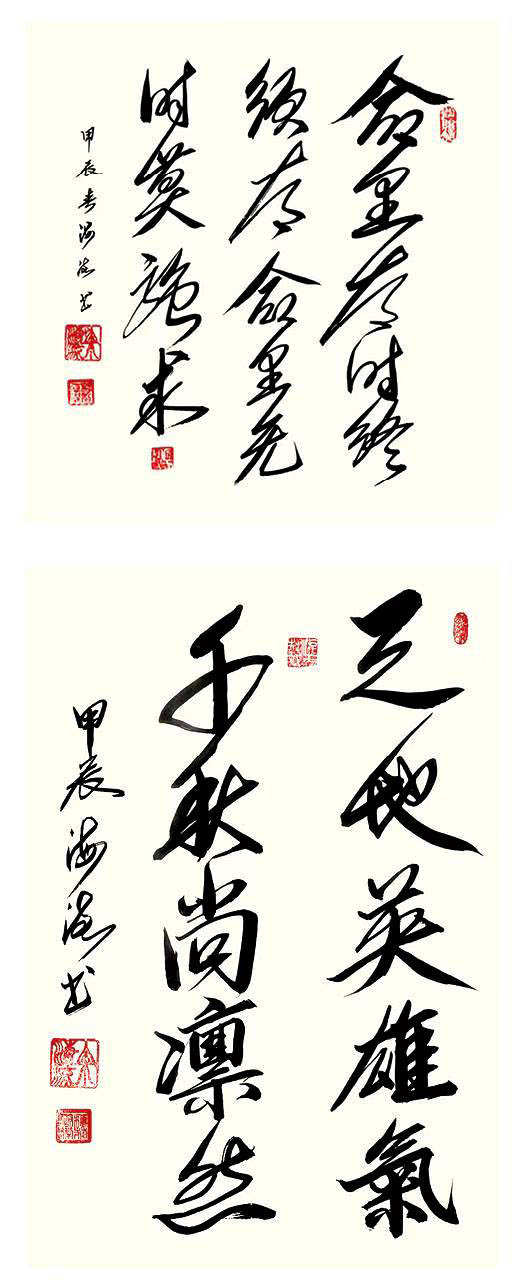 命里有时终
须有命里无
时莫强求
甲辰春海书
天地英雄氣
千秋尚凛然
甲辰海书